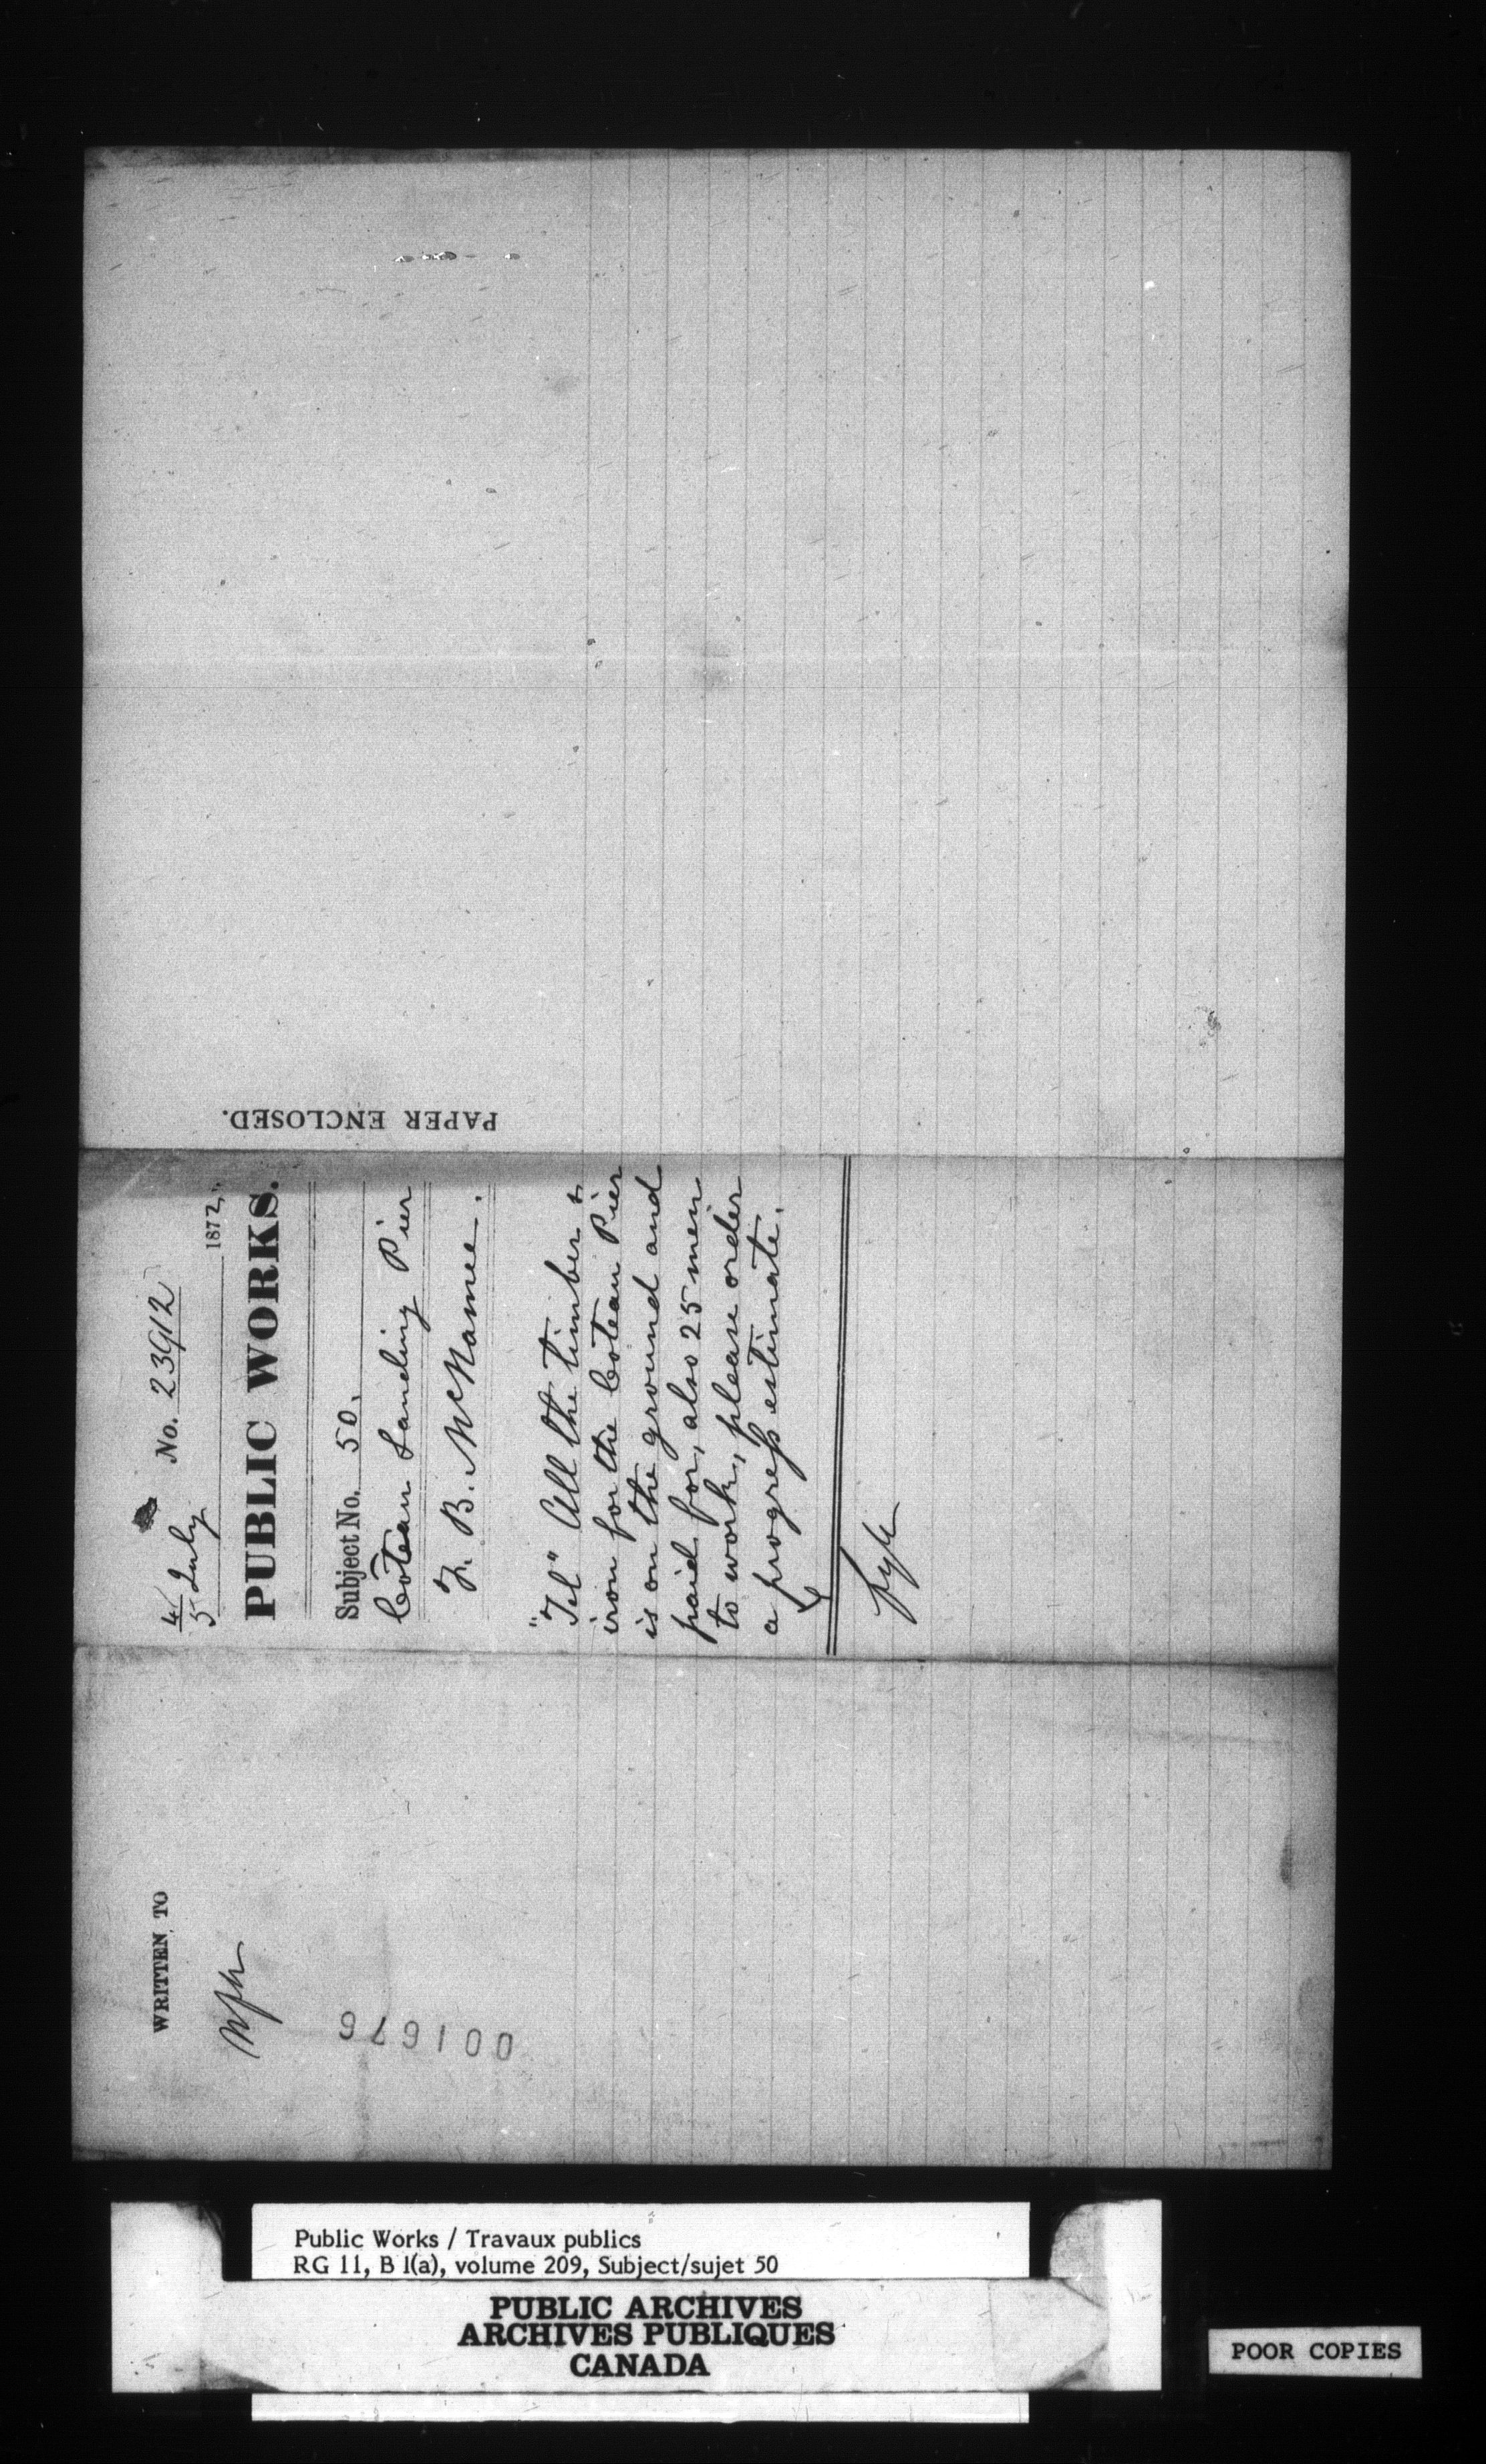 4/5 July No. 23912
1872.
PUBLIC WORKS.
Subject No. 50.
Côteau Landing Pier
F. B. McNamee.
"Tel" All the timber &
iron for the Coteau Pier
is on the ground and
paid for, also 25 men
to work, please order
a progress estimate.
PAPER ENCLOSED.
WRITTEN TO
001676
Public Works / Travaux publics
RG 11, B 1(a), volume 209, Subject/sujet 50
PUBLIC ARCHIVES
ARCHIVES PUBLIQUES
CANADA
POOR COPIES